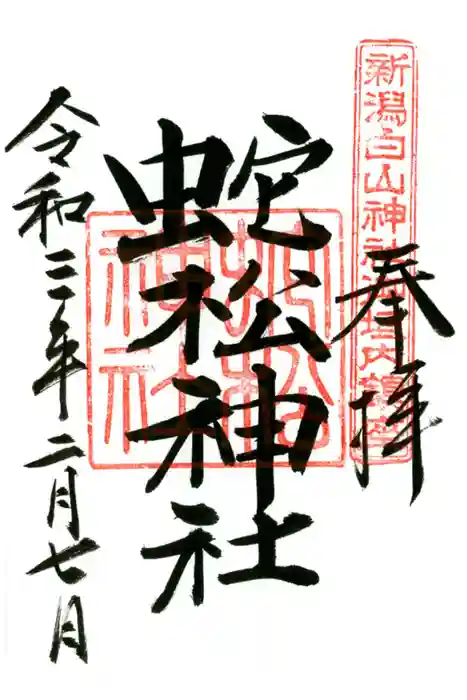 新潟白山神社
境内鎮座
奉拝
蛇松神社
蛇松神社
令和三年二月七日